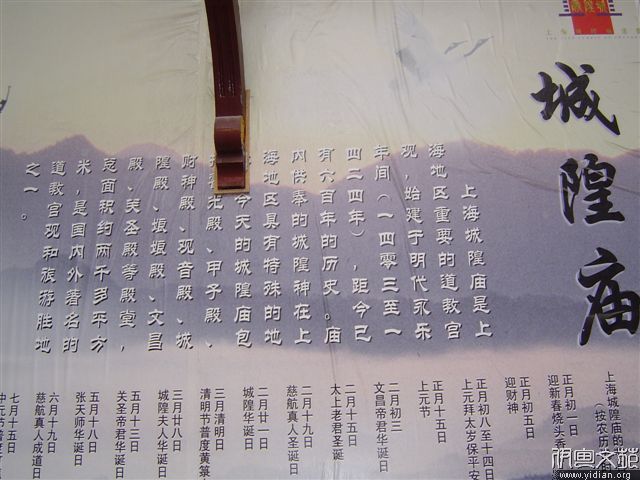 城隍庙
上海城隍庙是上
海地区重要的道教宫
观,始建于明代永乐
年间(一四零三至一
四二四年),距今已
有六百年的历史。庙
内供奉的城隍神在上
海地区具有特殊的地
今天的城隍庙包
光殿、甲子殿、
财神殿、观音殿、城
隍殿、娘娘殿、文昌
殿、关圣殿等殿堂,
总面积约两千多平方
米,是国内外著名的
道教宫观和旅游胜地
之一。
上海城隍庙的
(按农历
正月初一日
迎新春烧头香
正月初五日
迎财神
正月初八至十四日
上元拜太岁保平安
正月十五日
上元节
二月初三
文昌帝君华诞日
二月十五日
太上老君圣诞
二月十九日
慈航真人圣诞日
二月廿一日
城隍华诞日
三月清明日
清明节普度黄箓
三月廿八日
城隍夫人华诞日
五月十三日
关圣帝君华诞日
五月十八日
张天师华诞日
六月十九日
慈航真人成道日
七月十五日
中元节普度
www.yidian.org